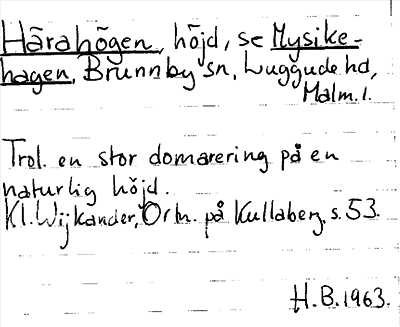 Härahögen, höjd, se Mysike-
hagen, Brunnby sn, Luggude hd,
Malm. l.
Trol. en stor domarering på en
naturlig höjd.
Kl. Wijkander, Ortn. på Kullaberg, s. 53.
H.B. 1963.